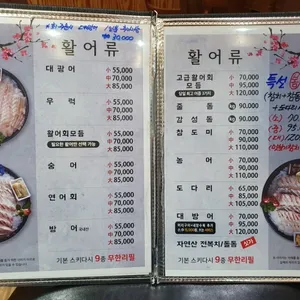 활어류
대광어 小 55,000
中 70,000
大 85,000
우럭 小 55,000
中 70,000
大 85,000
활어회모듬 小 55,000
필요한 활어만 선택 가능 中 70,000
大 85,000
숭어 小 55,000
中 70,000
大 85,000
연어회 小 55,000
中 70,000
大 85,000
방어 小 55,000
中 70,000
大 85,000
기본 스키다시 9종 무한리필
활어류
고급활어회 小 70,000
모듬 中 95,000
大 120,000
줄돔 kg 90,000
감성돔 kg 90,000
참도미 小 70,000
中 95,000
大 120,000
농어 小 70,000
中 95,000
大 120,000
도다리 小 70,000
中 95,000
大 120,000
대방어 小 70,000
中 95,000
大 120,000
자연산 전복치/돌돔 싯가
기본 스키다시 9종 무한리필
특선